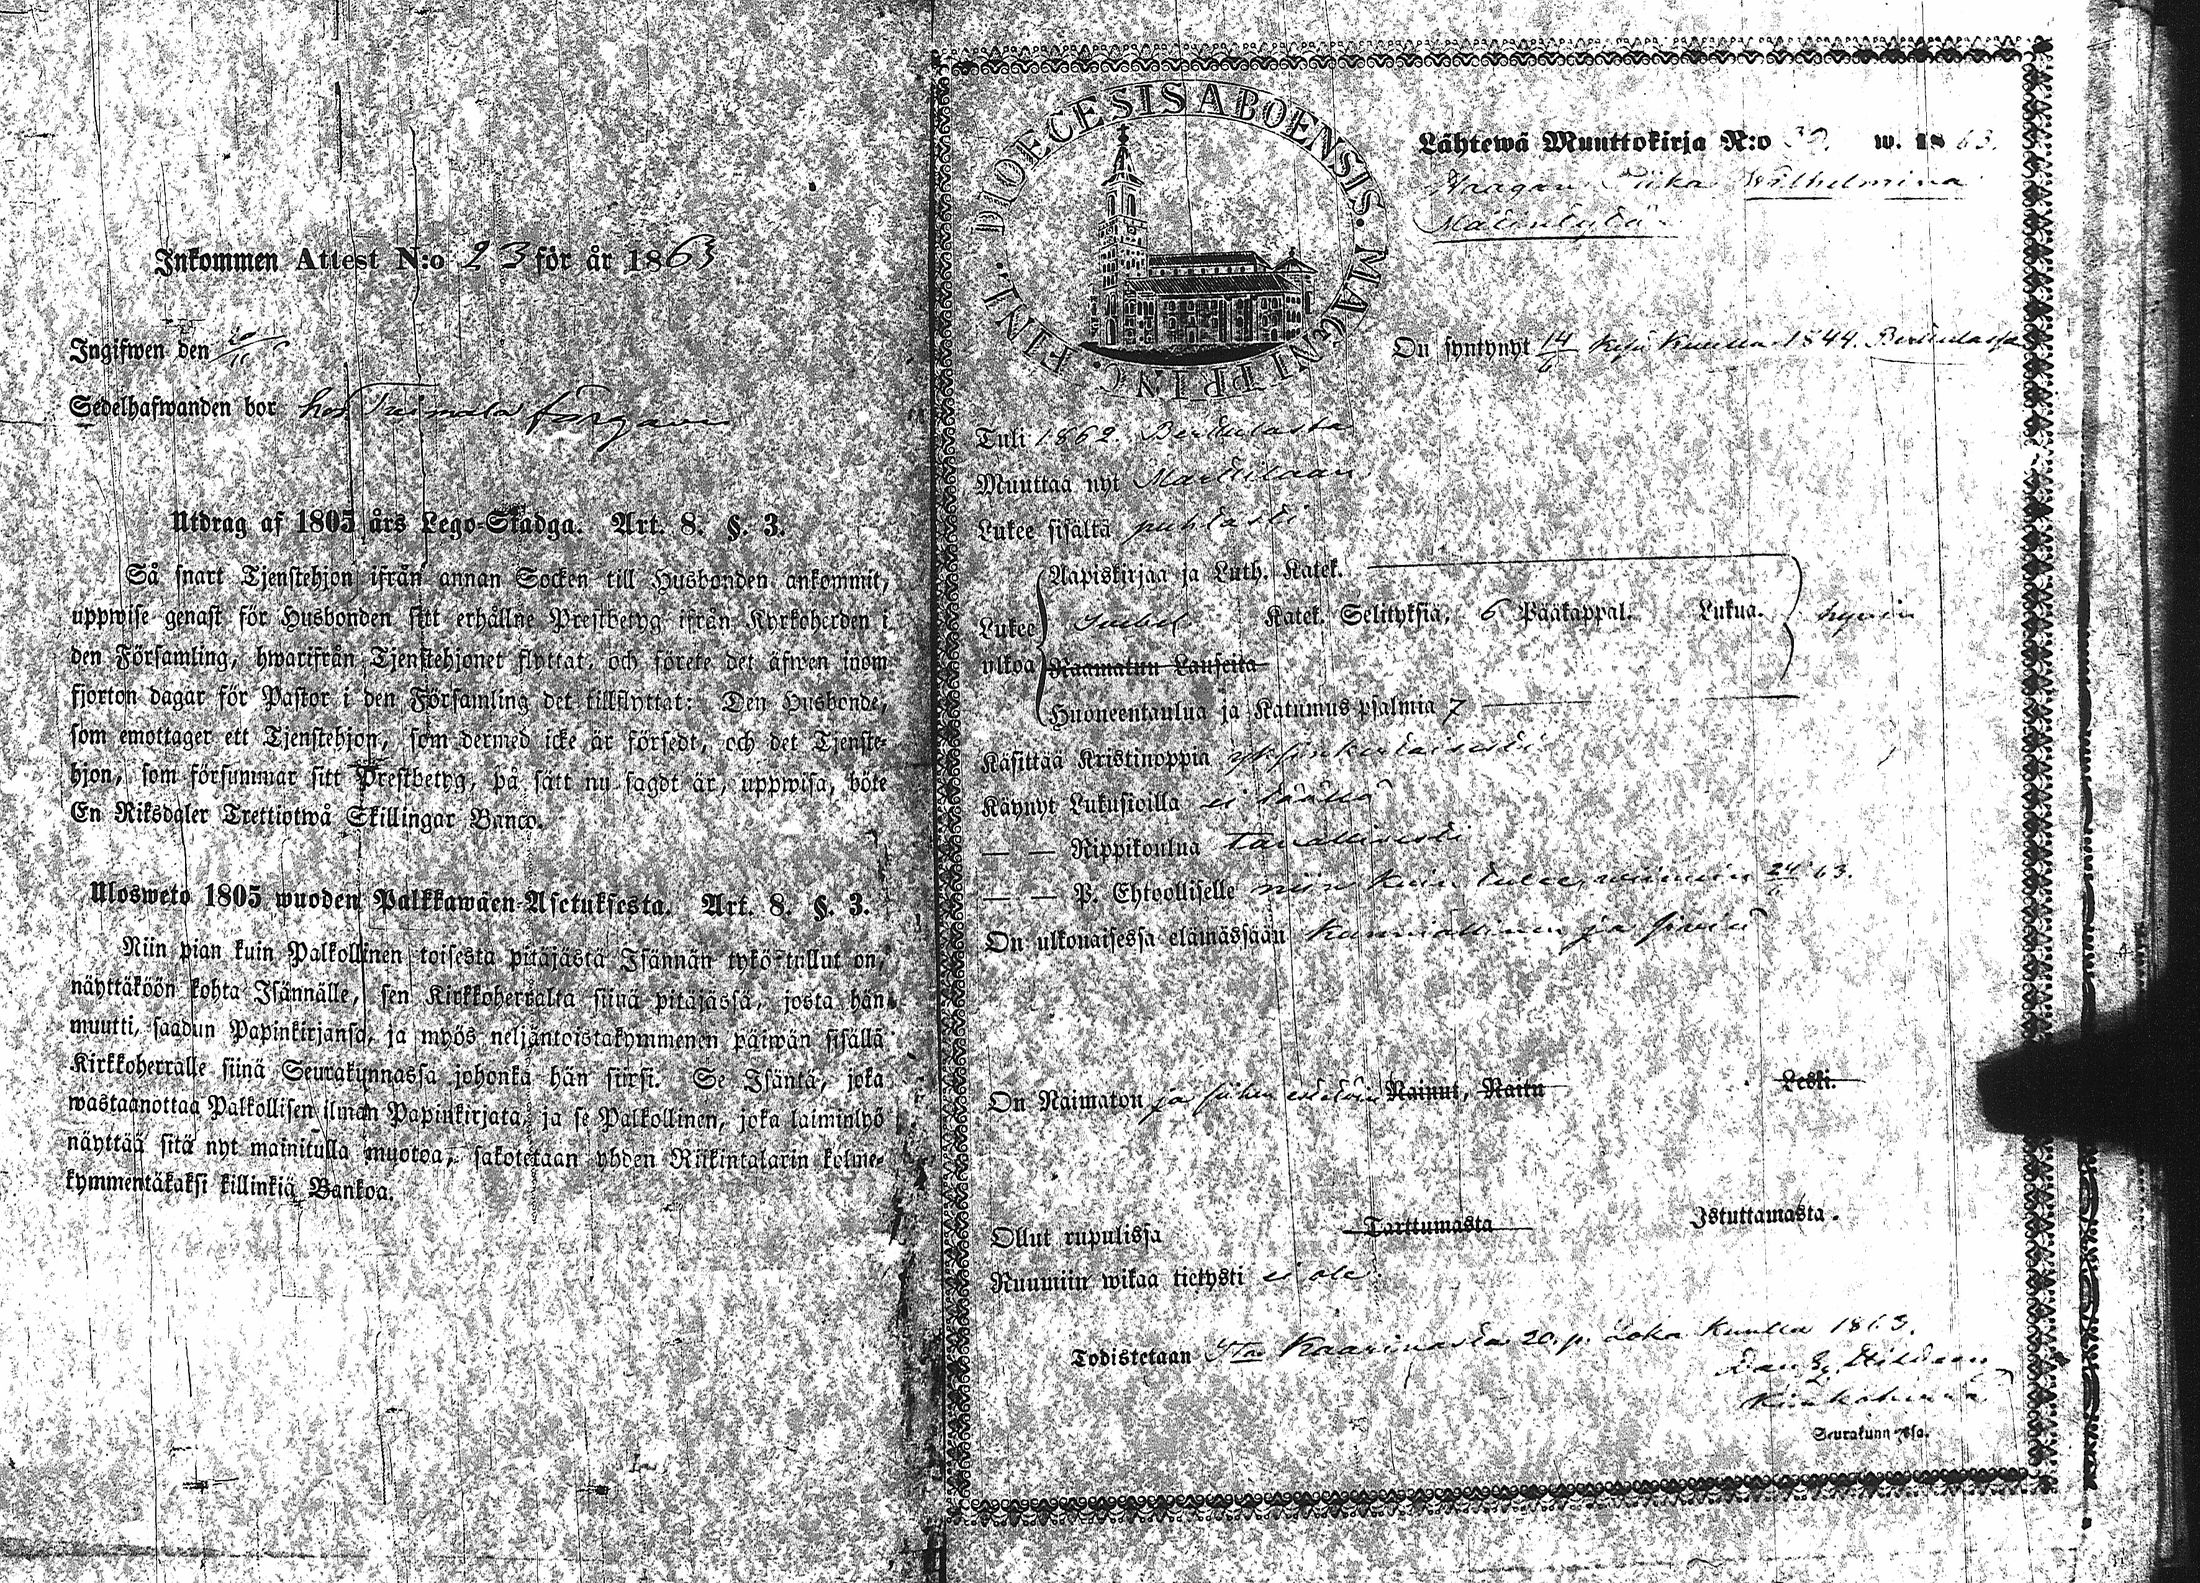 Inkommen Attest N:o 23 för år 1863
Ingifwen den
Sedelhafwanden bor hos
Utdrag af 1805 års Lego-Stadga. Art. 8. §. 3.
Så snart Tjenstehjon ifrån annan Socken till Husbonden ankommit,
uppwise genast för Husbonden sitt erhållne Prestbetyg ifrån Kyrkoherden i
den Församling, hwarifrån Tjenstehjonet flyttat, och förete det äfwen inom
fjorton dagar för Pastor i den Församling det tillflyttat: Den Husbonde,
som emottager ett Tjenstehjon, som dermed icke är försedt, och det Tjenste-
hjon, som försummar sitt Prestbetyg, på sätt nu sagdt är, uppwisa, böte
En Riksdaler Trettiotwå Skillingar Banco.
Ulosweto 1805 wuoden Palkkawäen-Asetuksesta. Art. 8. §. 3.
Niin pian kuin Palkollinen toisesta pitäjästä Isännän tykö tullut on,
näyttäköön kohta Isännälle, sen Kirkkoherralta siinä pitäjässä, josta hän
muutti, saadun Papinkirjansa, ja myös neljäntoistakymmenen päiwän sisällä
Kirkkoherralle siinä Seurakunnassa johonka hän siirsi. Se Isäntä, joka
wastaanottaa Palkollisen ilman Papinkirjata, ja se Palkollinen, joka laiminlyö
näyttää sitä nyt mainitulla muotoa, sakotetaan yhden Riikintalarin kolme-
kymmentäkaksi killinkiä Bankoa.
DIOECESIS ABOENSIS. MAGNI PRINC. FINL.
Lähtewä Muuttokirja N:o 30. w. 1863.
Wilhelmina
On syntynyt 14/6 Kesä Kuulla 1844. Perttulassa
Tuli 1862. Perttulasta
Muuttaa nyt Marttilaan
Lukee sisältä puhtasti
Aapiskirjaa ja Luth. Katek.
Lukee Svebel Katek. Selityksiä, 6 Pääkappal. Lukua. hywin
ulkoa Raamatun Lauseita
Huoneentaulua ja Katumus psalmia 7
Käsittää Kristinoppia yksinkertaisesti
Käynyt Lukusioilla ei täällä
— — Rippikoulua Tawallisesti
— — P. Ehtoolliselle niin kuin tulee, wiimein 63.
On ulkonaisessa elämässään Kunniallinen ja siwiä
On Naimaton ja siihen esteetöin Nainut, Naitu Leski.
Ollut rupulissa Tarttumasta Istuttamasta.
Ruumiin wikaa tietysti ei ole
Todistetaan Kaarinasta 20. p. Loka Kuulla 1863.
Kirkkoherra
Seurakunnassa.